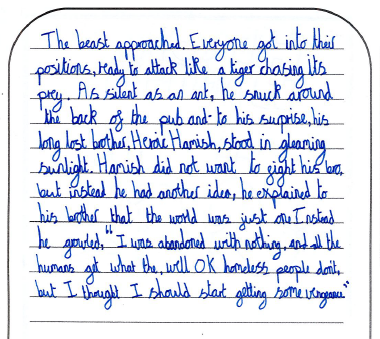 The beast approached. Everyone got into their
positions, ready to attack like a tiger chasing its
prey. As silent as an ant, he snuck around
the back of the pub and to his surprise, his
long lost brother, Heroic Hamish, stood in gleaming
sunlight. Hamish did not want to eight his bro,
but instead he had another idea, he explained to
his brother that the world was just one Instead
he growled, "I was abandoned with nothing, and all the
humans get what the, well OK homeless people don't,
but I thought I should start getting some vengeance"